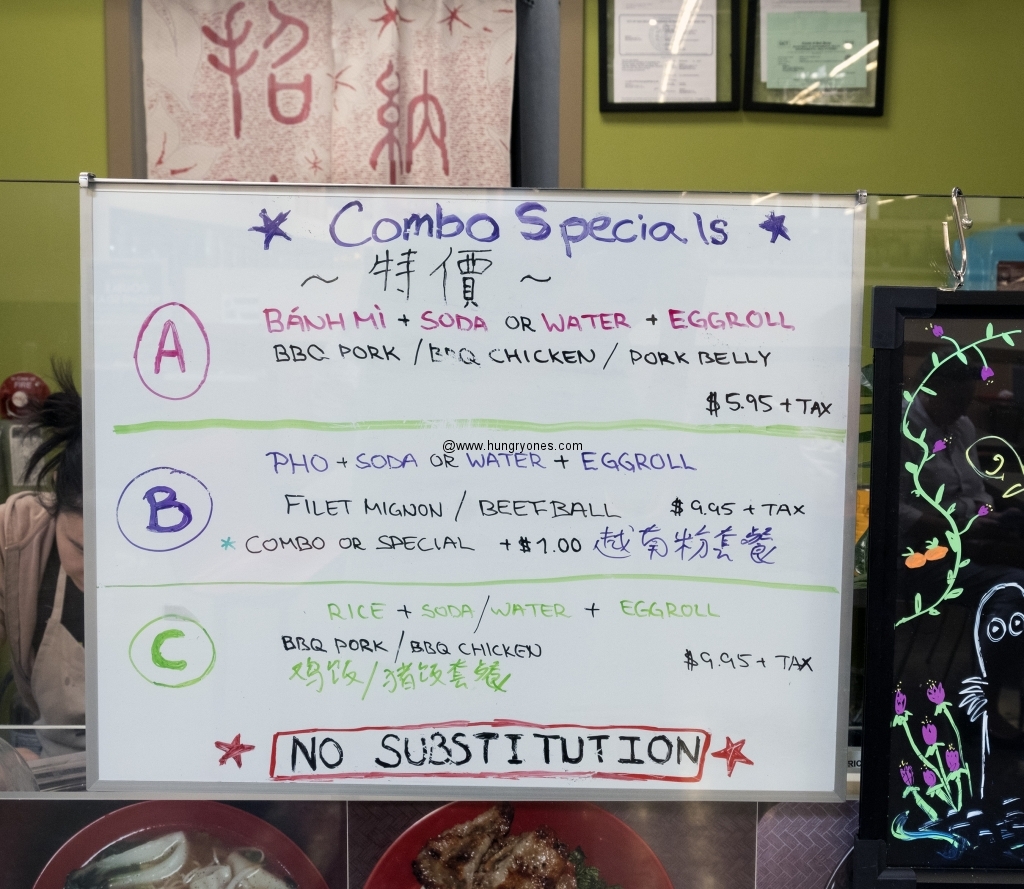 招 納
★ Combo Specials ★
~ 特價 ~
A
BÁNH MÌ + SODA OR WATER + EGGROLL
BBQ PORK / BBQ CHICKEN / PORK BELLY
$5.95 + TAX
@www.hungryones.com
B
PHO + SODA OR WATER + EGGROLL
FILET MIGNON / BEEFBALL $9.95 + TAX
* COMBO OR SPECIAL +$1.00 越南粉套餐
C
RICE + SODA/WATER + EGGROLL
BBQ PORK / BBQ CHICKEN
$9.95 + TAX
鸡饭/猪饭套餐
★ NO SUBSTITUTION ★